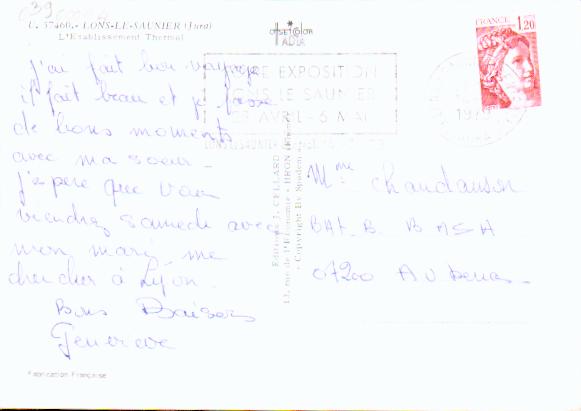 39
C. 37460. - LONS-LE-SAUNIER (Jura)
L'Etablissement Thermal
OFFSETCOLOR
FRANCE
1,20
EXPOSITION
LONS LE SAUNIER
AVRIL - 6 MAI
J'ai fait bon voyage
il fait beau et je passe
de bons moments
avec ma soeur -
j'espere que vous
viendrez samedi avec
mon mari me
chercher à Lyon.
Bons Baisers
Genevieve
Mme Chaudanson
BAT. B.
07200 Aubenas
Editions J. CELLARD
13, rue de l'Economie - BRON
- Copyright By Spadem -
Fabrication Française